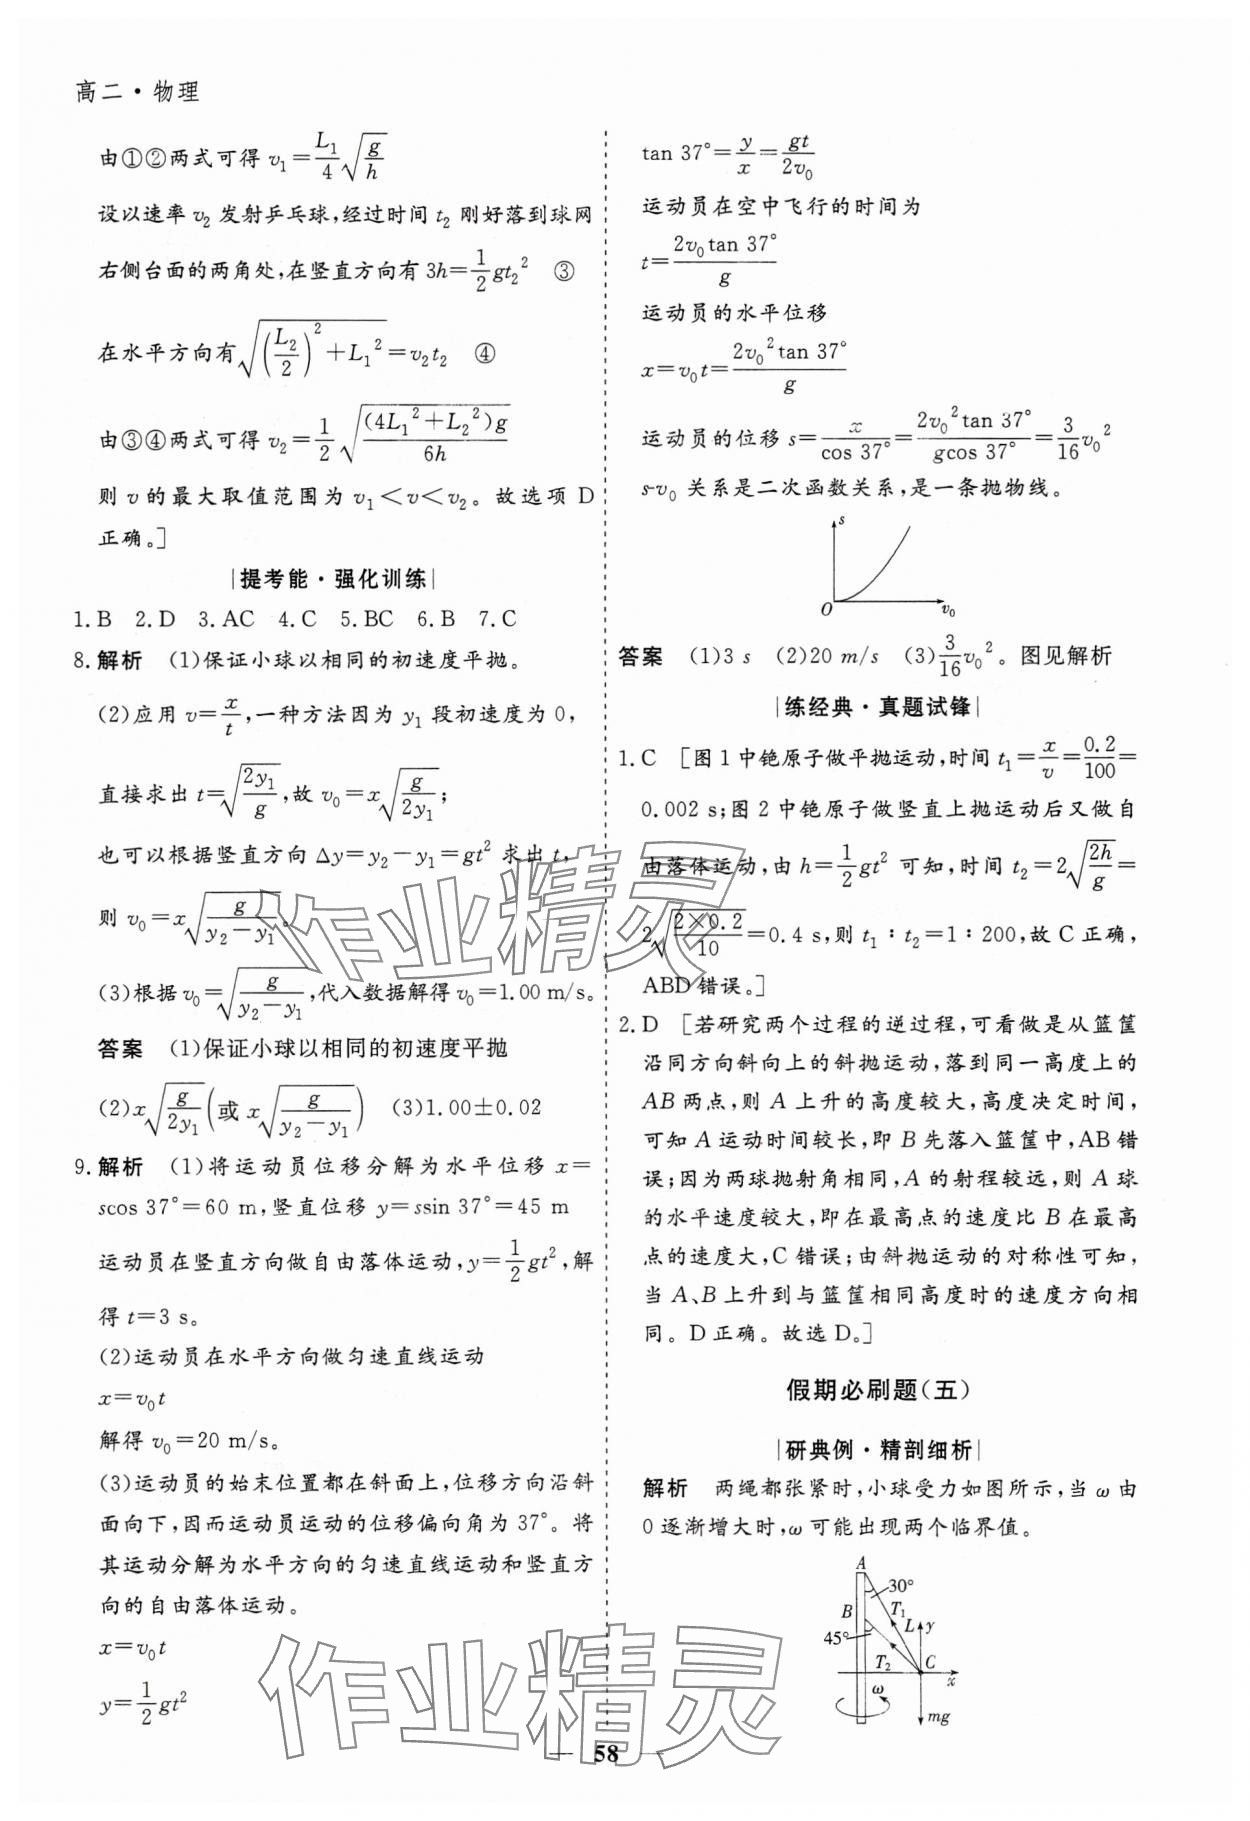 高二·物理
由①②两式可得 v₁=L₁/4 √(g/h)
设以速率 v₂ 发射乒乓球,经过时间 t₂ 刚好落到球网
右侧台面的两角处,在竖直方向有 3h=1/2 gt₂² ③
在水平方向有√((L₂/2)²+L₁²)=v₂t₂ ④
由③④两式可得 v₂=1/2 √((4L₁²+L₂²)g/6h)
则 v 的最大取值范围为 v₁<v<v₂。故选项 D
正确。]
|提考能·强化训练|
1.B 2.D 3.AC 4.C 5.BC 6.B 7.C
8.解析 (1)保证小球以相同的初速度平抛。
(2)应用 v=x/t,一种方法因为 y₁ 段初速度为 0,
直接求出 t=√(2y₁/g),故 v₀=x√(g/2y₁);
也可以根据竖直方向 Δy=y₂-y₁=gt² 求出 t,
则 v₀=x√(g/(y₂-y₁))。
(3)根据 v₀=√(g/(y₂-y₁)),代入数据解得 v₀=1.00 m/s。
答案 (1)保证小球以相同的初速度平抛
(2)x√(g/2y₁)(或 x√(g/(y₂-y₁))) (3)1.00±0.02
9.解析 (1)将运动员位移分解为水平位移 x=
scos 37°=60 m,竖直位移 y=ssin 37°=45 m
运动员在竖直方向做自由落体运动,y=1/2 gt²,解
得 t=3 s。
(2)运动员在水平方向做匀速直线运动
x=v₀t
解得 v₀=20 m/s。
(3)运动员的始末位置都在斜面上,位移方向沿斜
面向下,因而运动员运动的位移偏向角为 37°。将
其运动分解为水平方向的匀速直线运动和竖直方
向的自由落体运动。
x=v₀t
y=1/2 gt²
tan 37°=y/x=gt/2v₀
运动员在空中飞行的时间为
t=2v₀tan 37°/g
运动员的水平位移
x=v₀t=2v₀²tan 37°/g
运动员的位移 s=x/cos 37°=2v₀²tan 37°/gcos 37°=3/16 v₀²
s-v₀ 关系是二次函数关系,是一条抛物线。
s
O v₀
答案 (1)3 s (2)20 m/s (3)3/16 v₀²。图见解析
|练经典·真题试锋|
1.C [图 1 中铯原子做平抛运动,时间 t₁=x/v=0.2/100=
0.002 s;图 2 中铯原子做竖直上抛运动后又做自
由落体运动,由 h=1/2 gt² 可知,时间 t₂=2√(2h/g)=
2√(2×0.2/10)=0.4 s,则 t₁∶t₂=1∶200,故 C 正确,
ABD 错误。]
2.D [若研究两个过程的逆过程,可看做是从篮筐
沿同方向斜向上的斜抛运动,落到同一高度上的
AB 两点,则 A 上升的高度较大,高度决定时间,
可知 A 运动时间较长,即 B 先落入篮筐中,AB 错
误;因为两球抛射角相同,A 的射程较远,则 A 球
的水平速度较大,即在最高点的速度比 B 在最高
点的速度大,C 错误;由斜抛运动的对称性可知,
当 A、B 上升到与篮筐相同高度时的速度方向相
同。D 正确。故选 D。]
假期必刷题(五)
|研典例·精剖细析|
解析 两绳都张紧时,小球受力如图所示,当 ω 由
0 逐渐增大时,ω 可能出现两个临界值。
A
30°
B T₁
L y
45°
T₂ C
x
ω
mg
58
作业精灵
作业精灵